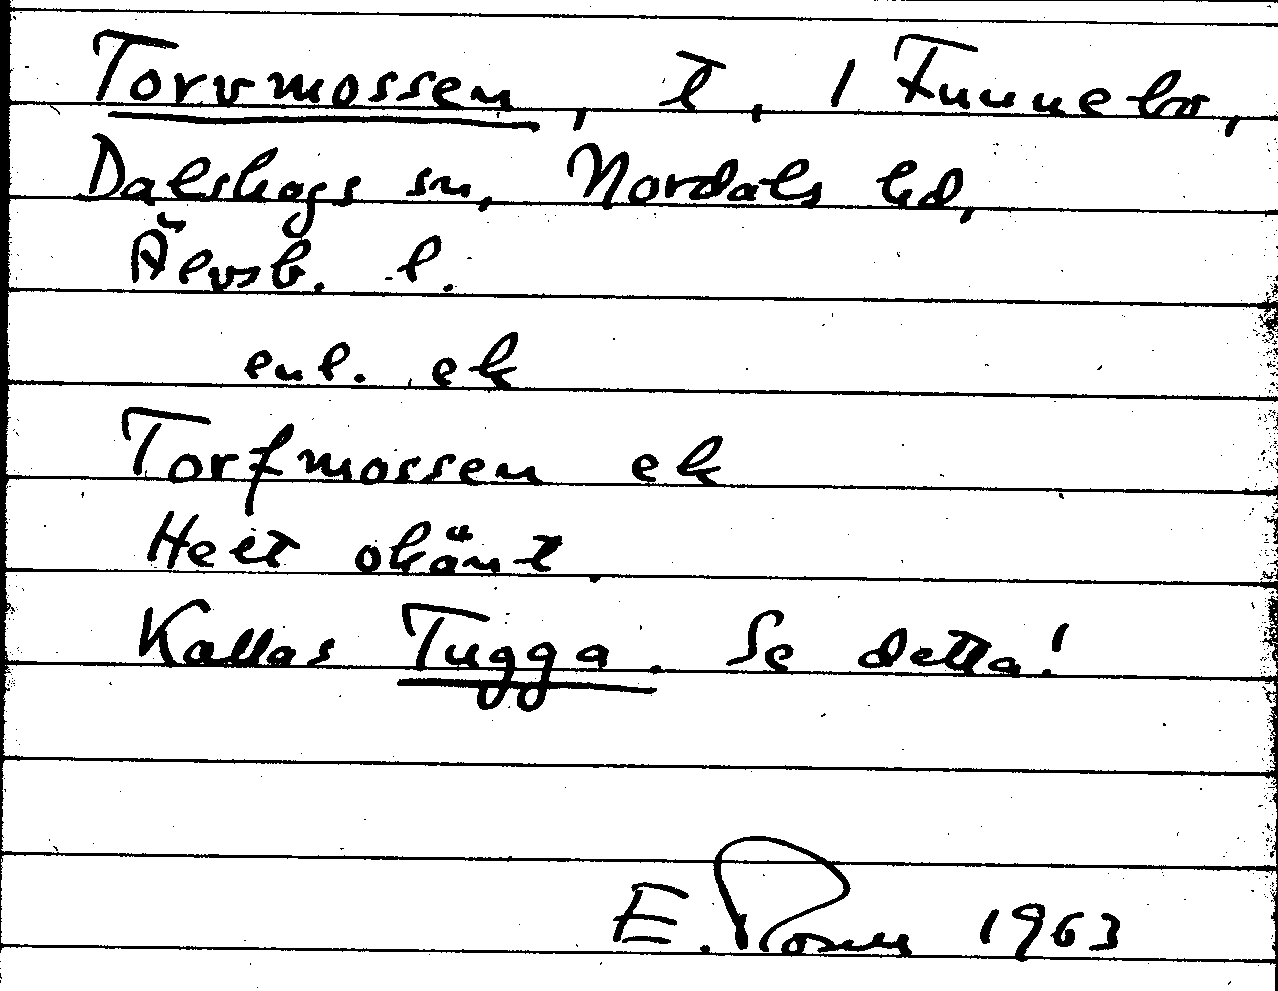 Torvmossen, t, 1 Funnebo,
Dalskogs sn, Nordals hd,
Älvsb. l.
enl. ek
Torfmossen ek
Helt okänt.
Kallas Tugga. Se detta!
E. 1963